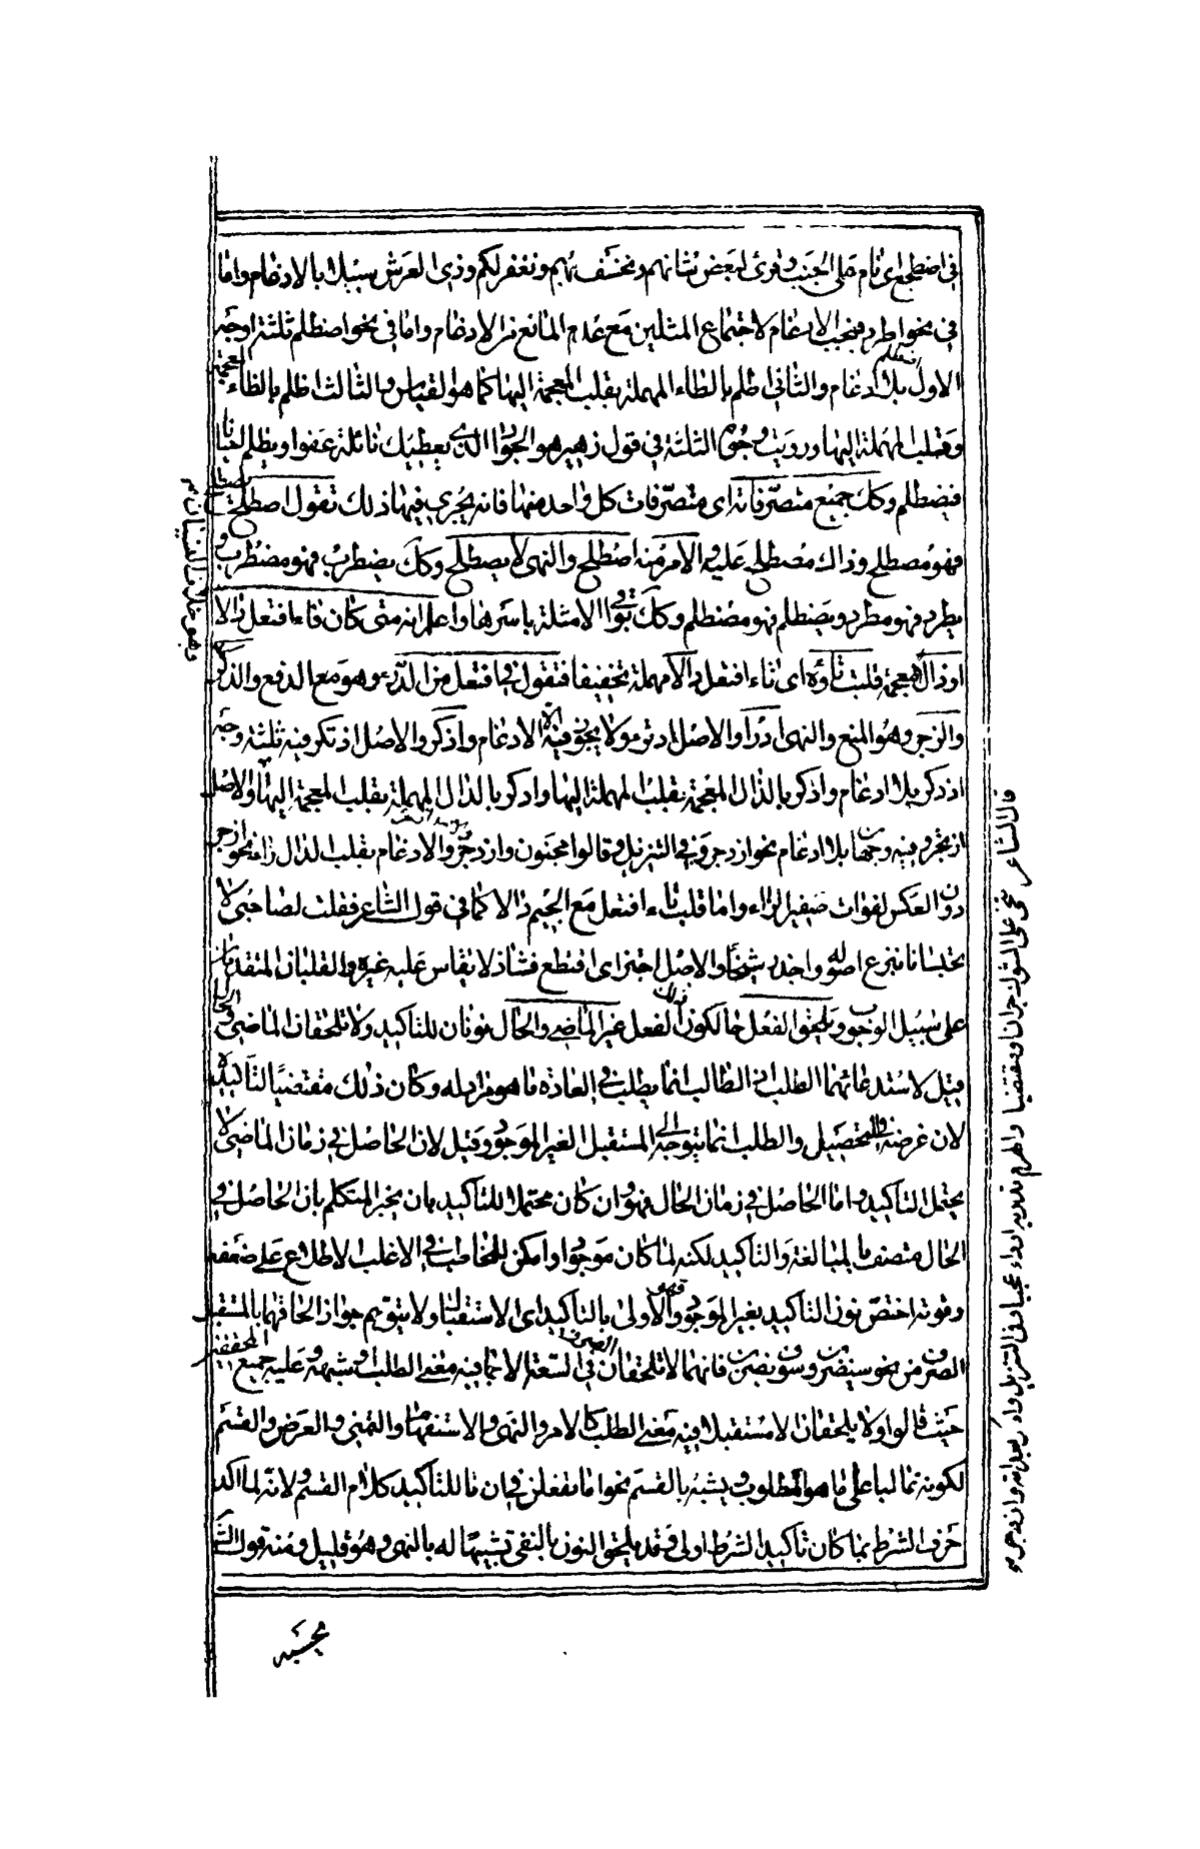 في اضطجع اى نام على الجنب وقرئ لبعض شانهم ونخسف بهم ونغفر لكم وذى العرش سبيلا بالادغام واما
في نحو اطرد فيجب الادغام لاجتماع المثلين مع عدم المانع من الادغام واما في نحو اضطلم ثلثة اوجه
الاول بلا ادغام والثاني اطلم بالطاء المهملة بقلب المعجمة اليها كما هو القياس والثالث اظلم بالظاء المعجمة
وقلب المهملة اليها ورويت وجوه الثلثة في قول زهير هو الجواد الذى يعطيك نائلة عفوا ويظلم احيانا
فيضطلم وكذلك جميع متصرفاته اى متصرفات كل واحد منها فانه يجرى فيها ذلك تقول اصطلح يصطلح
فهو مصطلح وذاك مصطلح عليه والامر منه اصطلح والنهى لا يصطلح وكذلك يضطرب فهو مضطرب و
يطرد فهو مطرد ويضطلم فهو مضطلم وكذلك بواقي الامثلة باسرها واعلم انه متى كان فاء افتعل دالا
او ذالا معجمة قلبت تاؤه اى تاء افتعل دالا مهملة تخفيفا فتقول في افتعل من الدرء وهو مع الدفع والذكر
والزجر وهو المنع والنهى ادرأ والاصل ادترء ولا يجوز فيه الا الادغام واذكر والاصل اذتكر فيه ثلثة وجه
اذدكر بلا ادغام واذكر بالذال المعجمة بقلب المهملة اليها وادكر بالدال المهملة بقلب المعجمة اليها والاصل
ازتجر وفيه وجهان بلا ادغام نحو ازدجر وفي التنزيل وقالوا مجنون وازدجر والادغام بقلب الدال زاء نحو ازجر
دون العكس لفوات صفير الزاء واما قلب تاء افتعل مع الجيم دالا كما في قول الشاعر فقلت لصاحبي لا
تحبسانا بنزع اصوله واجدز شيحا والاصل اجتز اى اقطع فشاذ لا يقاس عليه غيره والقلبان المتقدمان
على سبيل الوجوب ويلحق الفعل حال كون ذلك الفعل غير الماضي والحال نونان للتاكيد ولا تلحقان الماضي والحال
قيل لاستدعائهما الطلب اذ الطالب انما يطلب في العادة ما هو مراد له وكان ذلك مقتضيا لتاكيده
لان غرضه في التحصيل والطلب انما يتوجه الى المستقبل الغير الموجود وقيل لان الحاصل في زمان الماضي لا
يحتمل التاكيد واما الحاصل في زمان الحال فهو وان كان محتملا للتاكيد بان يخبر المتكلم بان الحاصل في
الحال متصف بالمبالغة والتاكيد لكنه لما كان موجودا وامكن للمخاطب في الاغلب الاطلاع على ضعفه
وقوته اختص نون التاكيد بغير الموجود والاولى بالتاكيد اى الاستقبال ولا يتوهم جواز الحاقهما بالمستقبل
الصرف من نحو سيضربن وسوف نضربن فانهما لا تلحقان في السعة الا بما فيه معنى الطلب او شبهه وعليه جميع المحققين
حيث قالوا ولا يلحقان الا مستقبلا فيه معنى الطلب كالامر والنهى والاستفهام والتمنى والعرض والقسم
لكونه غالبا على ما هو المطلوب ويشبه بالقسم نحو اما تفعلن في ان ما للتاكيد كلام القسم ولانه لما اكد
حرف الشرط بما كان تاكيد الشرط اولى وقد يلحق النون بالنفى تشبيها له بالنهى وهو قليل ومنه قول الشاعر
وهو خلاف القياس
قال الشاعر